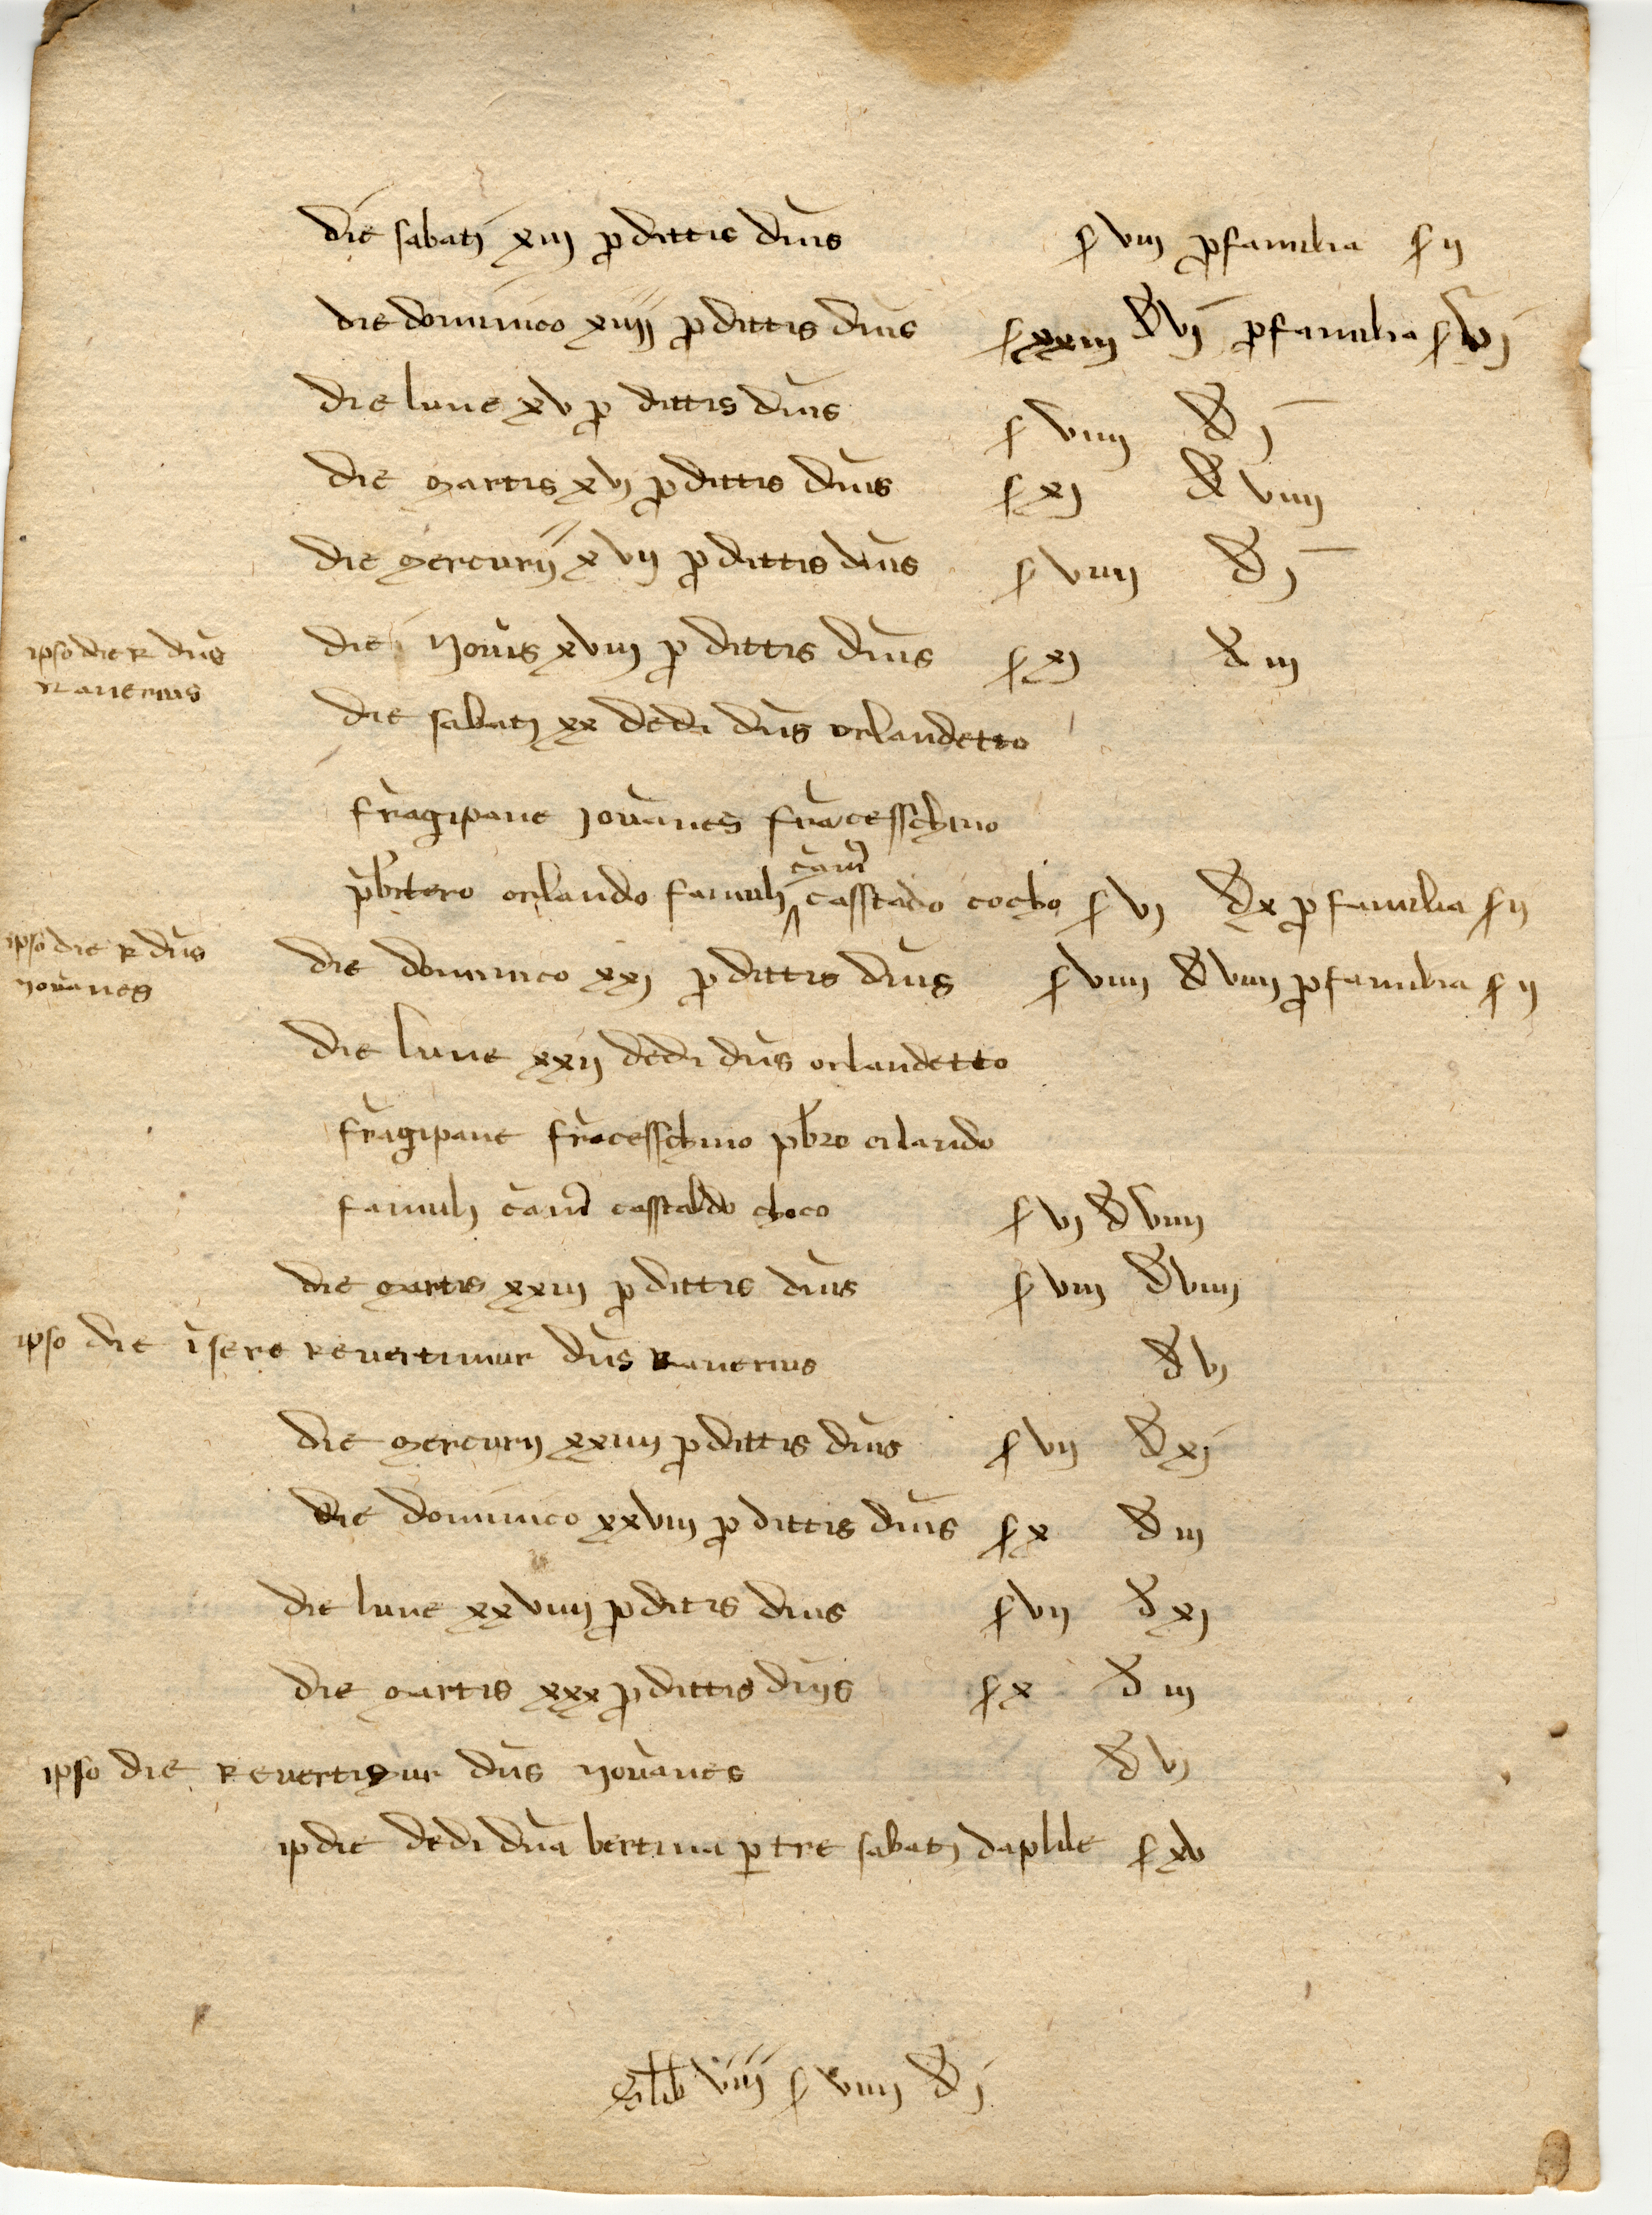 die sabatj xiij p dittis dnis s viij p familia s ij
die dominico xiiij p dittis dnis s xxiij d vj p familia s vj
die lune xv p dittis dnis s viiij d j
die martis xvj p dittis dnis s xj d viiij
die mercurij xvij p dittis dnis s viiij d j
ipso die R dns
Ranerius
die Jovis xviij p dittis dnis s xj d iij
die sabatj xx dedi dns orlandetto
fragipane Jovanes fracesschino
cam
pbitero orlando famulj casstado cocho s vj d x p familia s ij
ipso die R dns
Jovanes
die dominico xxj p dittis dnis s viiij d viiij p familia s ij
die lune xxij dedi dns orlandetto
fragipane fracesschino pbro orlando
famulj cam casstaldo choco s vj d viiij
die martis xxiij p dittis dnis s viij d viiij
ipso die i sere Revertimur dns Ranerius d vj
die mercurij xxiiij p dittis dnis s vij d xj
die dominico xxviij p dittis dnis s x d iij
die lune xxviiij p ditis dnis s vij d xj
die martis xxx p dittis dnis s x d iij
ipso die Revertimur dns Jovanes d vj
ip die dedi dna bertina p tre sabatj daplile s xv
lib viij s viiij d j